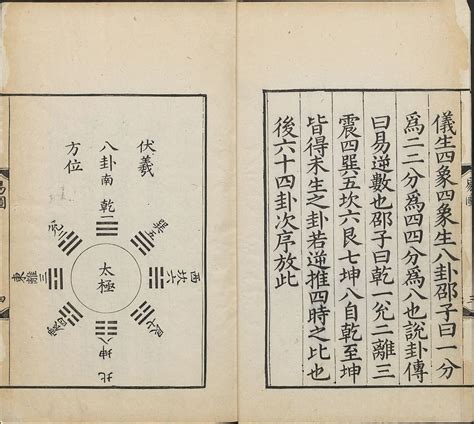 儀生四象四象生八卦邵子曰一分
為二二分為四四分為八也說卦傳
曰易逆數也邵子曰乾一兊二離三
震四巽五坎六艮七坤八自乾至坤
皆得未生之卦若逆推四時之比也
後六十四卦次序放此
伏羲
八卦
方位
南
乾一
兊二
巽五
東
離三
太極
坎六
西
震四
艮七
坤八
北
易圖
四